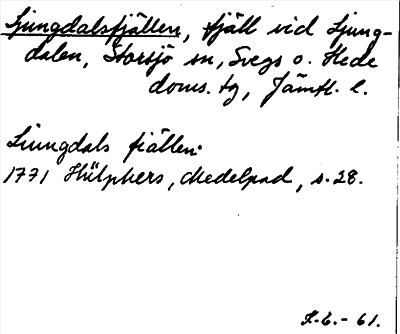 Ljungdalsfjällen, fjäll vid Ljung-
dalen, Storsjö sn, Svegs o. Hede
doms. tg, Jämtl. l.
Liungdals fiällen:
1771 Hülphers, Medelpad, s. 28.
K.E. - 61.